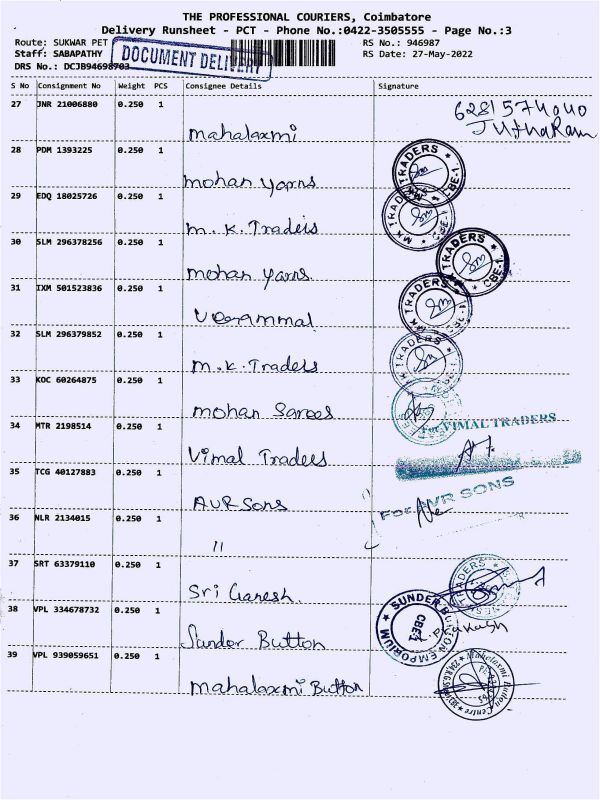 THE PROFESSIONAL COURIERS, Coimbatore
Delivery Runsheet - PCT - Phone No.:0422-3505555 - Page No.:3
Route: SUKWAR PET
RS No.: 946987
Staff: SABAPATHY
RS Date: 27-May-2022
DRS No.: DCJB94698703
DOCUMENT DELIVERY
S No Consignment No Weight PCS Consignee Details Signature
27 JNR 21006880 0.250 1 mahalaxmi
6281574040
28 PDM 1393225 0.250 1 mohan yarns
MK TRADERS ★ CBE-1.
29 EDQ 18025726 0.250 1 m.k. Traders
MK TRADERS ★ CBE-1.
30 SLM 296378256 0.250 1 mohan yarns
MK TRADERS ★ CBE-1.
31 IXM 501523836 0.250 1
MK TRADERS ★ CBE-1.
32 SLM 296379852 0.250 1 m.k. Traders
MK TRADERS ★ CBE-1.
33 KOC 60264875 0.250 1 mohan Sarees
34 MTR 2198514 0.250 1 Vimal Traders
For VIMAL TRADERS
35 TCG 40127883 0.250 1 AVR Sons
For AVR SONS
36 NLR 2134015 0.250 1 "
37 SRT 63379110 0.250 1 Sri Ganesh
TRADERS
38 VPL 334678732 0.250 1 Sundar Button
★ SUNDER BUTTON EMPORIUM ★ CBE-1
39 VPL 939059651 0.250 1 mahalaxmi Button
Mahalaxmi Button Centre